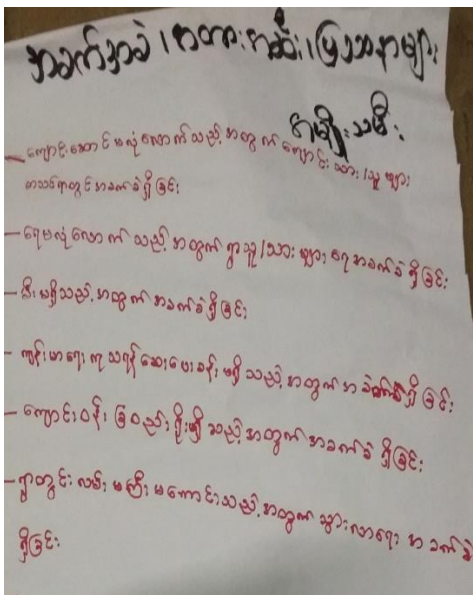 အခက်အခဲ၊ အတားအဆီး၊ ပြဿနာများ
အမျိုးသမီး
– ကျောင်းဆောင်မလုံလောက်သည့်အတွက် ကျောင်းသား/သူများ
စာသင်ရာတွင် အခက်ခဲရှိခြင်း
– ရေမလုံလောက်သည့်အတွက် ရွာသူ/သားများ ရေအခက်ခဲရှိခြင်း
– မီးမရှိသည့်အတွက် အခက်ခဲရှိခြင်း
– ကျန်းမာရေး ကုသရန်ဆေးပေးခန်း မရှိသည့်အတွက် အခက်ခဲရှိခြင်း
– ကျောင်းဝန်း ခြံစည်းရိုးမရှိသည့်အတွက်အခက်ခဲ ရှိခြင်း
– ရွာတွင်းလမ်းမကြီး မကောင်းသည့်အတွက် သွားလာရေး အခက်ခဲ
ရှိခြင်း